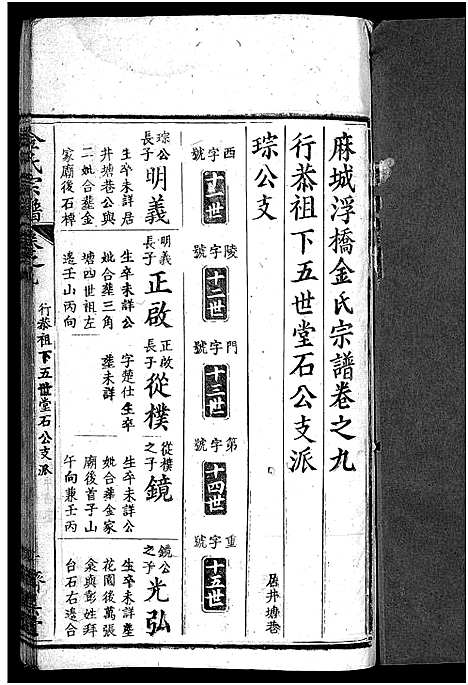 麻城浮橋金氏宗譜卷之九
行恭祖下五世堂石公支派
琮公支
居井塘巷
西字號
十一世
陵字號
十二世
門字號
十三世
第字號
十四世
重字號
十五世
琮公長子
明義
生卒未詳居
井塘巷公與
二妣合葬金
家廟後石樟
明義長子
正啟
生卒未詳公
妣合葬三角
塘四世祖左
邊壬山丙向
正啟長子
從樸
字楚仕生卒
葬未詳
從樸之子
鏡
生卒未詳公
妣合葬金家
廟後首子山
午向兼壬丙
鏡公之子
光弘
生卒未詳葬
花園後萬張
僉與彭姓拜
台石右邊合
金氏宗譜
卷之九
行恭祖下五世堂石公支派